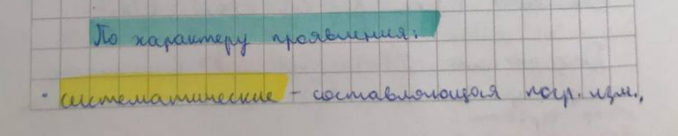 По характеру проявления:
· систематические – составляющая погр. изм.,